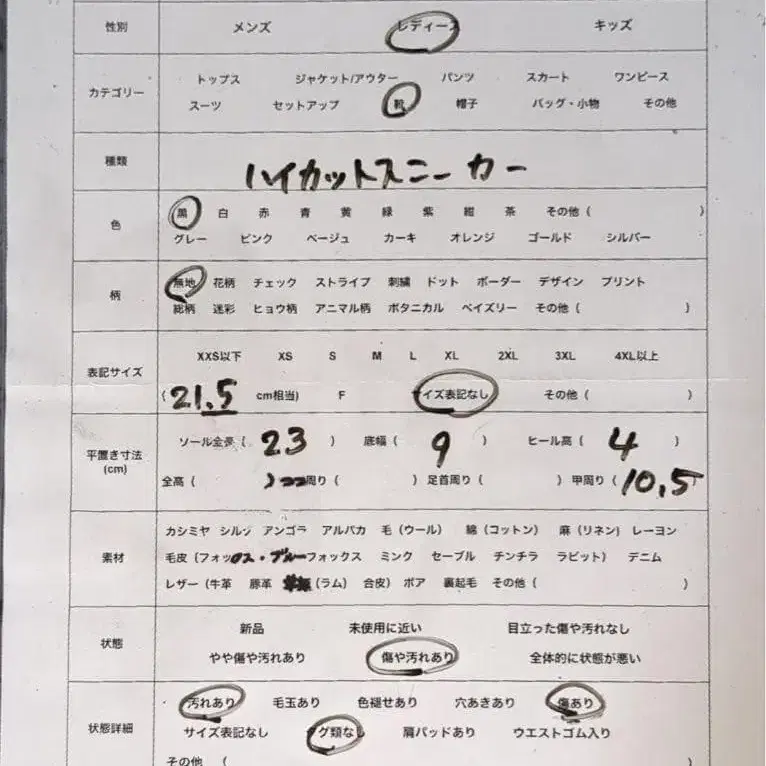 性別 メンズ レディース キッズ
カテゴリー
トップス ジャケット/アウター パンツ スカート ワンピース
スーツ セットアップ 靴 帽子 バッグ・小物 その他
種類 ハイカットスニーカー
色
黒 白 赤 青 黄 緑 紫 紺 茶 その他 ( )
グレー ピンク ベージュ カーキ オレンジ ゴールド シルバー
柄
無地 花柄 チェック ストライプ 刺繍 ドット ボーダー デザイン プリント
総柄 迷彩 ヒョウ柄 アニマル柄 ボタニカル ペイズリー その他 ( )
表記サイズ
XXS以下 XS S M L XL 2XL 3XL 4XL以上
( 21.5 cm相当) F サイズ表記なし その他 ( )
平置き寸法
(cm)
ソール全長 ( 23 ) 底幅 ( 9 ) ヒール高 ( 4 )
全高 ( ) 周り ( ) 足首周り ( ) 甲周り ( 10.5 )
素材
カシミヤ シルク アンゴラ アルパカ 毛 (ウール) 綿 (コットン) 麻 (リネン) レーヨン
毛皮 (フォックス・ブルーフォックス ミンク セーブル チンチラ ラビット) デニム
レザー (牛革 豚革 (ラム) 合皮) ボア 裏起毛 その他 ( )
状態
新品 未使用に近い 目立った傷や汚れなし
やや傷や汚れあり 傷や汚れあり 全体的に状態が悪い
状態詳細
汚れあり 毛玉あり 色褪せあり 穴あきあり 傷あり
サイズ表記なし タグ類なし 肩パッドあり ウエストゴム入り
その他 ( )